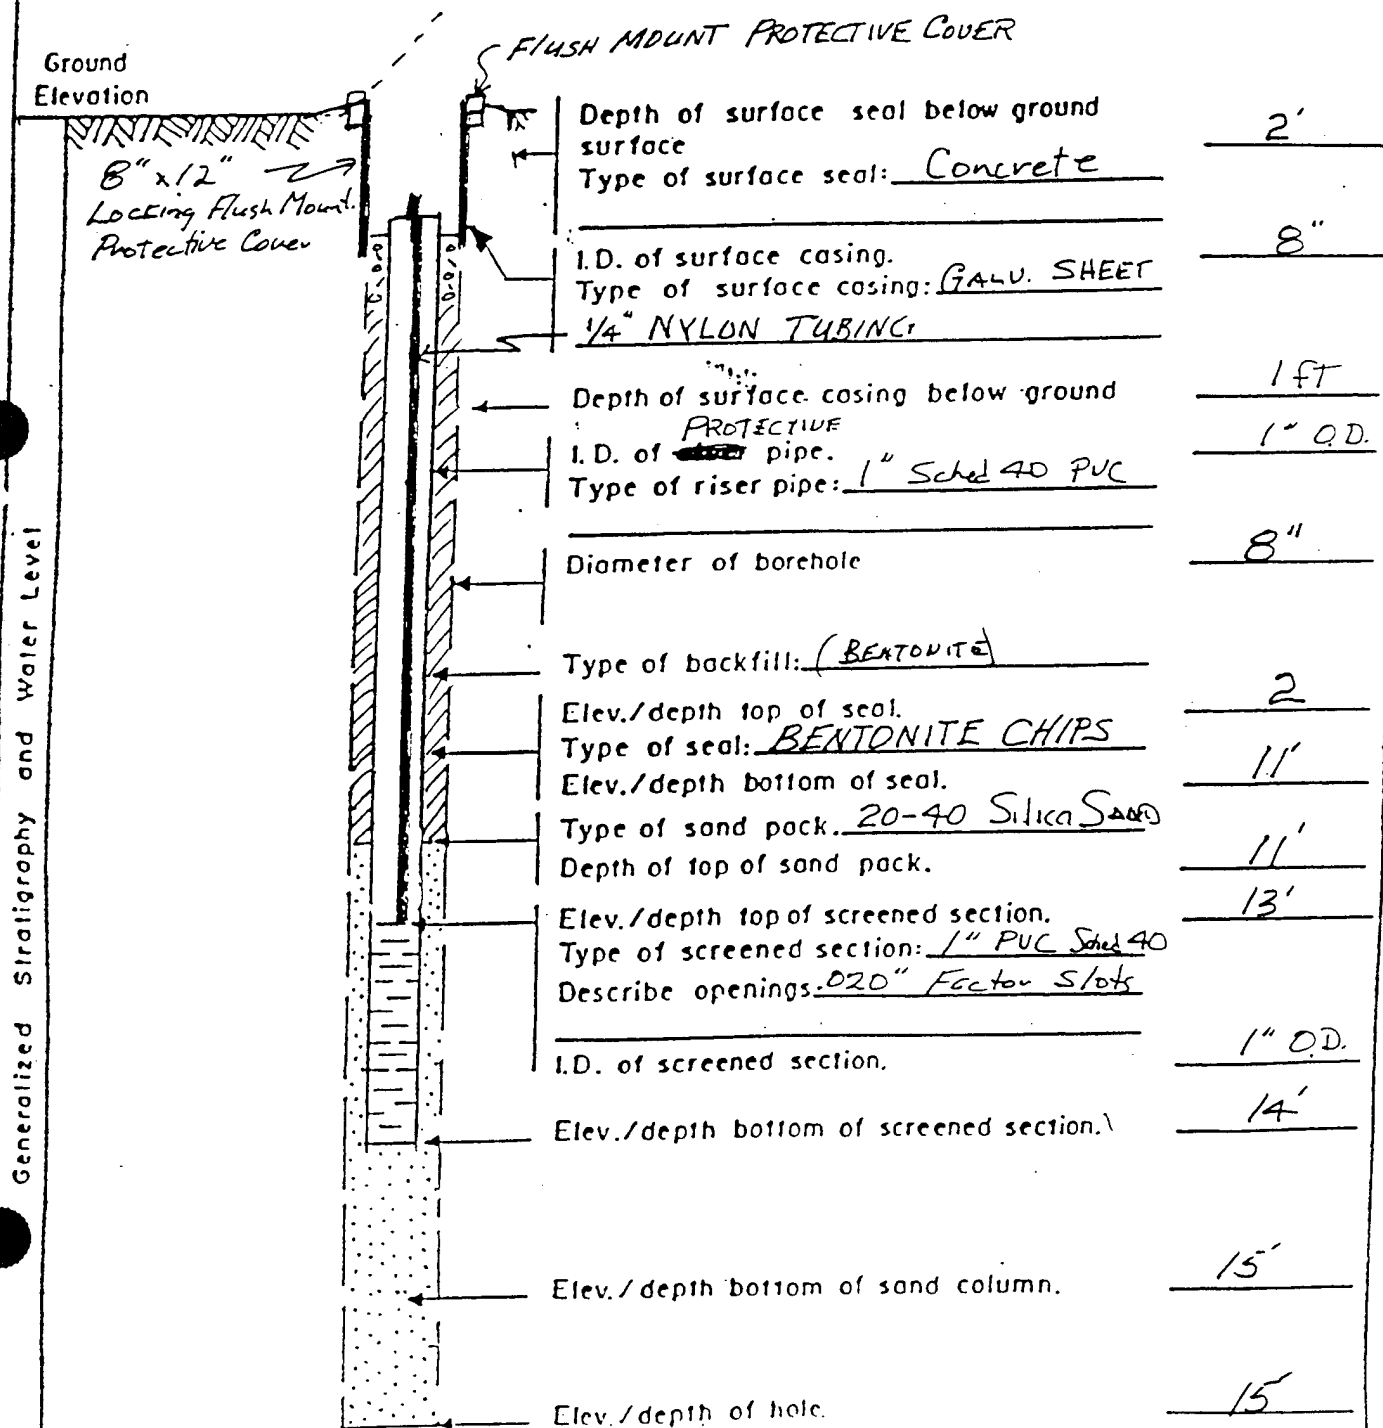 FLUSH MOUNT PROTECTIVE COVER
Ground
Elevation
8" x 12"
Locking Flush Mount
Protective Cover
Depth of surface seal below ground
surface
2'
Type of surface seal: Concrete
I.D. of surface casing.
8"
Type of surface casing: GALV. SHEET
1/4" NYLON TUBING
Depth of surface casing below ground
1 FT
PROTECTIVE
I.D. of pipe.
1" O.D.
Type of riser pipe: 1" Sched 40 PVC
Diameter of borehole
8"
Type of backfill: (BENTONITE)
Elev./depth top of seal.
2
Type of seal: BENTONITE CHIPS
Elev./depth bottom of seal.
11'
Type of sand pack. 20-40 Silica SAND
Depth of top of sand pack.
11'
Elev./depth top of screened section.
13'
Type of screened section: 1" PVC Sched 40
Describe openings. .020" Factor Slots
I.D. of screened section.
1" O.D.
Elev./depth bottom of screened section.
14'
Elev./depth bottom of sand column.
15'
Elev./depth of hole.
15'
Generalized Stratigraphy and Water Level